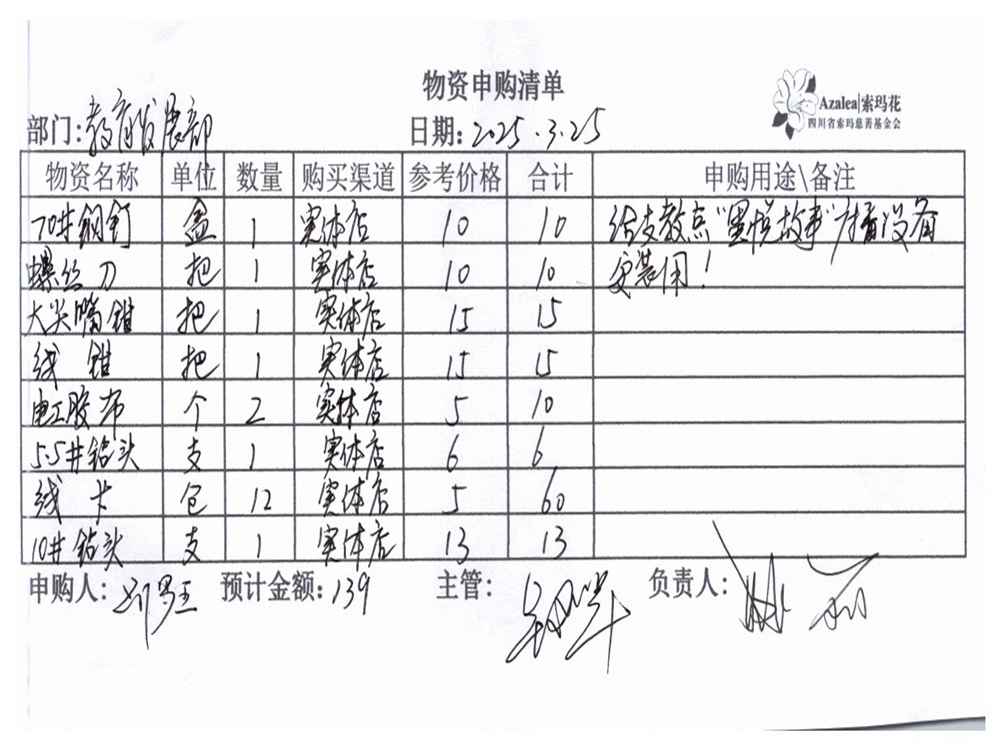 物资申购清单
Azalea|索玛花
四川省索玛慈善基金会
部门:教育发展部 日期:2025.3.25
物资名称 单位 数量 购买渠道 参考价格 合计 申购用途\备注
70#钢钉 盒 1 实体店 10 10 给支教点"里悦故事"广播设备
螺丝刀 把 1 实体店 10 10 安装用!
大尖嘴钳 把 1 实体店 15 15
线钳 把 1 实体店 15 15
电工胶布 个 2 实体店 5 10
5.5#钻头 支 1 实体店 6 6
线卡 包 12 实体店 5 60
10#钻头 支 1 实体店 13 13
申购人: 预计金额:139 主管: 负责人: